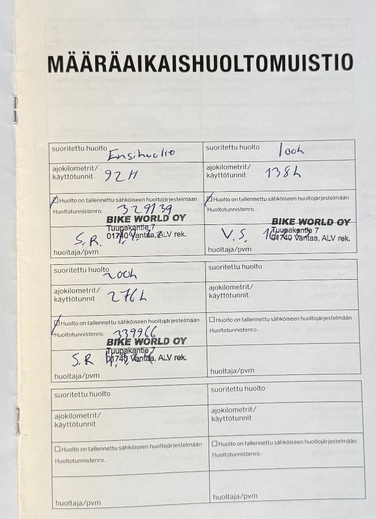 MÄÄRÄAIKAISHUOLTOMUISTIO
suoritettu huolto Ensihuolto
ajokilometrit/
käyttötunnit 92 H
Huolto on tallennettu sähköiseen huoltojärjestelmään
Huoltotunnistenro. 329139
BIKE WORLD OY
Tuupakantie 7
01740 Vantaa, ALV rek.
huoltaja/pvm S.R.
suoritettu huolto 100h
ajokilometrit/
käyttötunnit 138h
Huolto on tallennettu sähköiseen huoltojärjestelmään
Huoltotunnistenro.
BIKE WORLD OY
Tuupakantie 7
01740 Vantaa, ALV rek.
huoltaja/pvm V.S.
suoritettu huolto 200h
ajokilometrit/
käyttötunnit 276h
Huolto on tallennettu sähköiseen huoltojärjestelmään
Huoltotunnistenro. 339966
BIKE WORLD OY
Tuupakantie 7
01740 Vantaa, ALV rek.
huoltaja/pvm S.R
suoritettu huolto
ajokilometrit/
käyttötunnit
Huolto on tallennettu sähköiseen huoltojärjestelmään
Huoltotunnistenro.
huoltaja/pvm
suoritettu huolto
ajokilometrit/
käyttötunnit
Huolto on tallennettu sähköiseen huoltojärjestelmään
Huoltotunnistenro.
huoltaja/pvm
suoritettu huolto
ajokilometrit/
käyttötunnit
Huolto on tallennettu sähköiseen huoltojärjestelmään
Huoltotunnistenro.
huoltaja/pvm